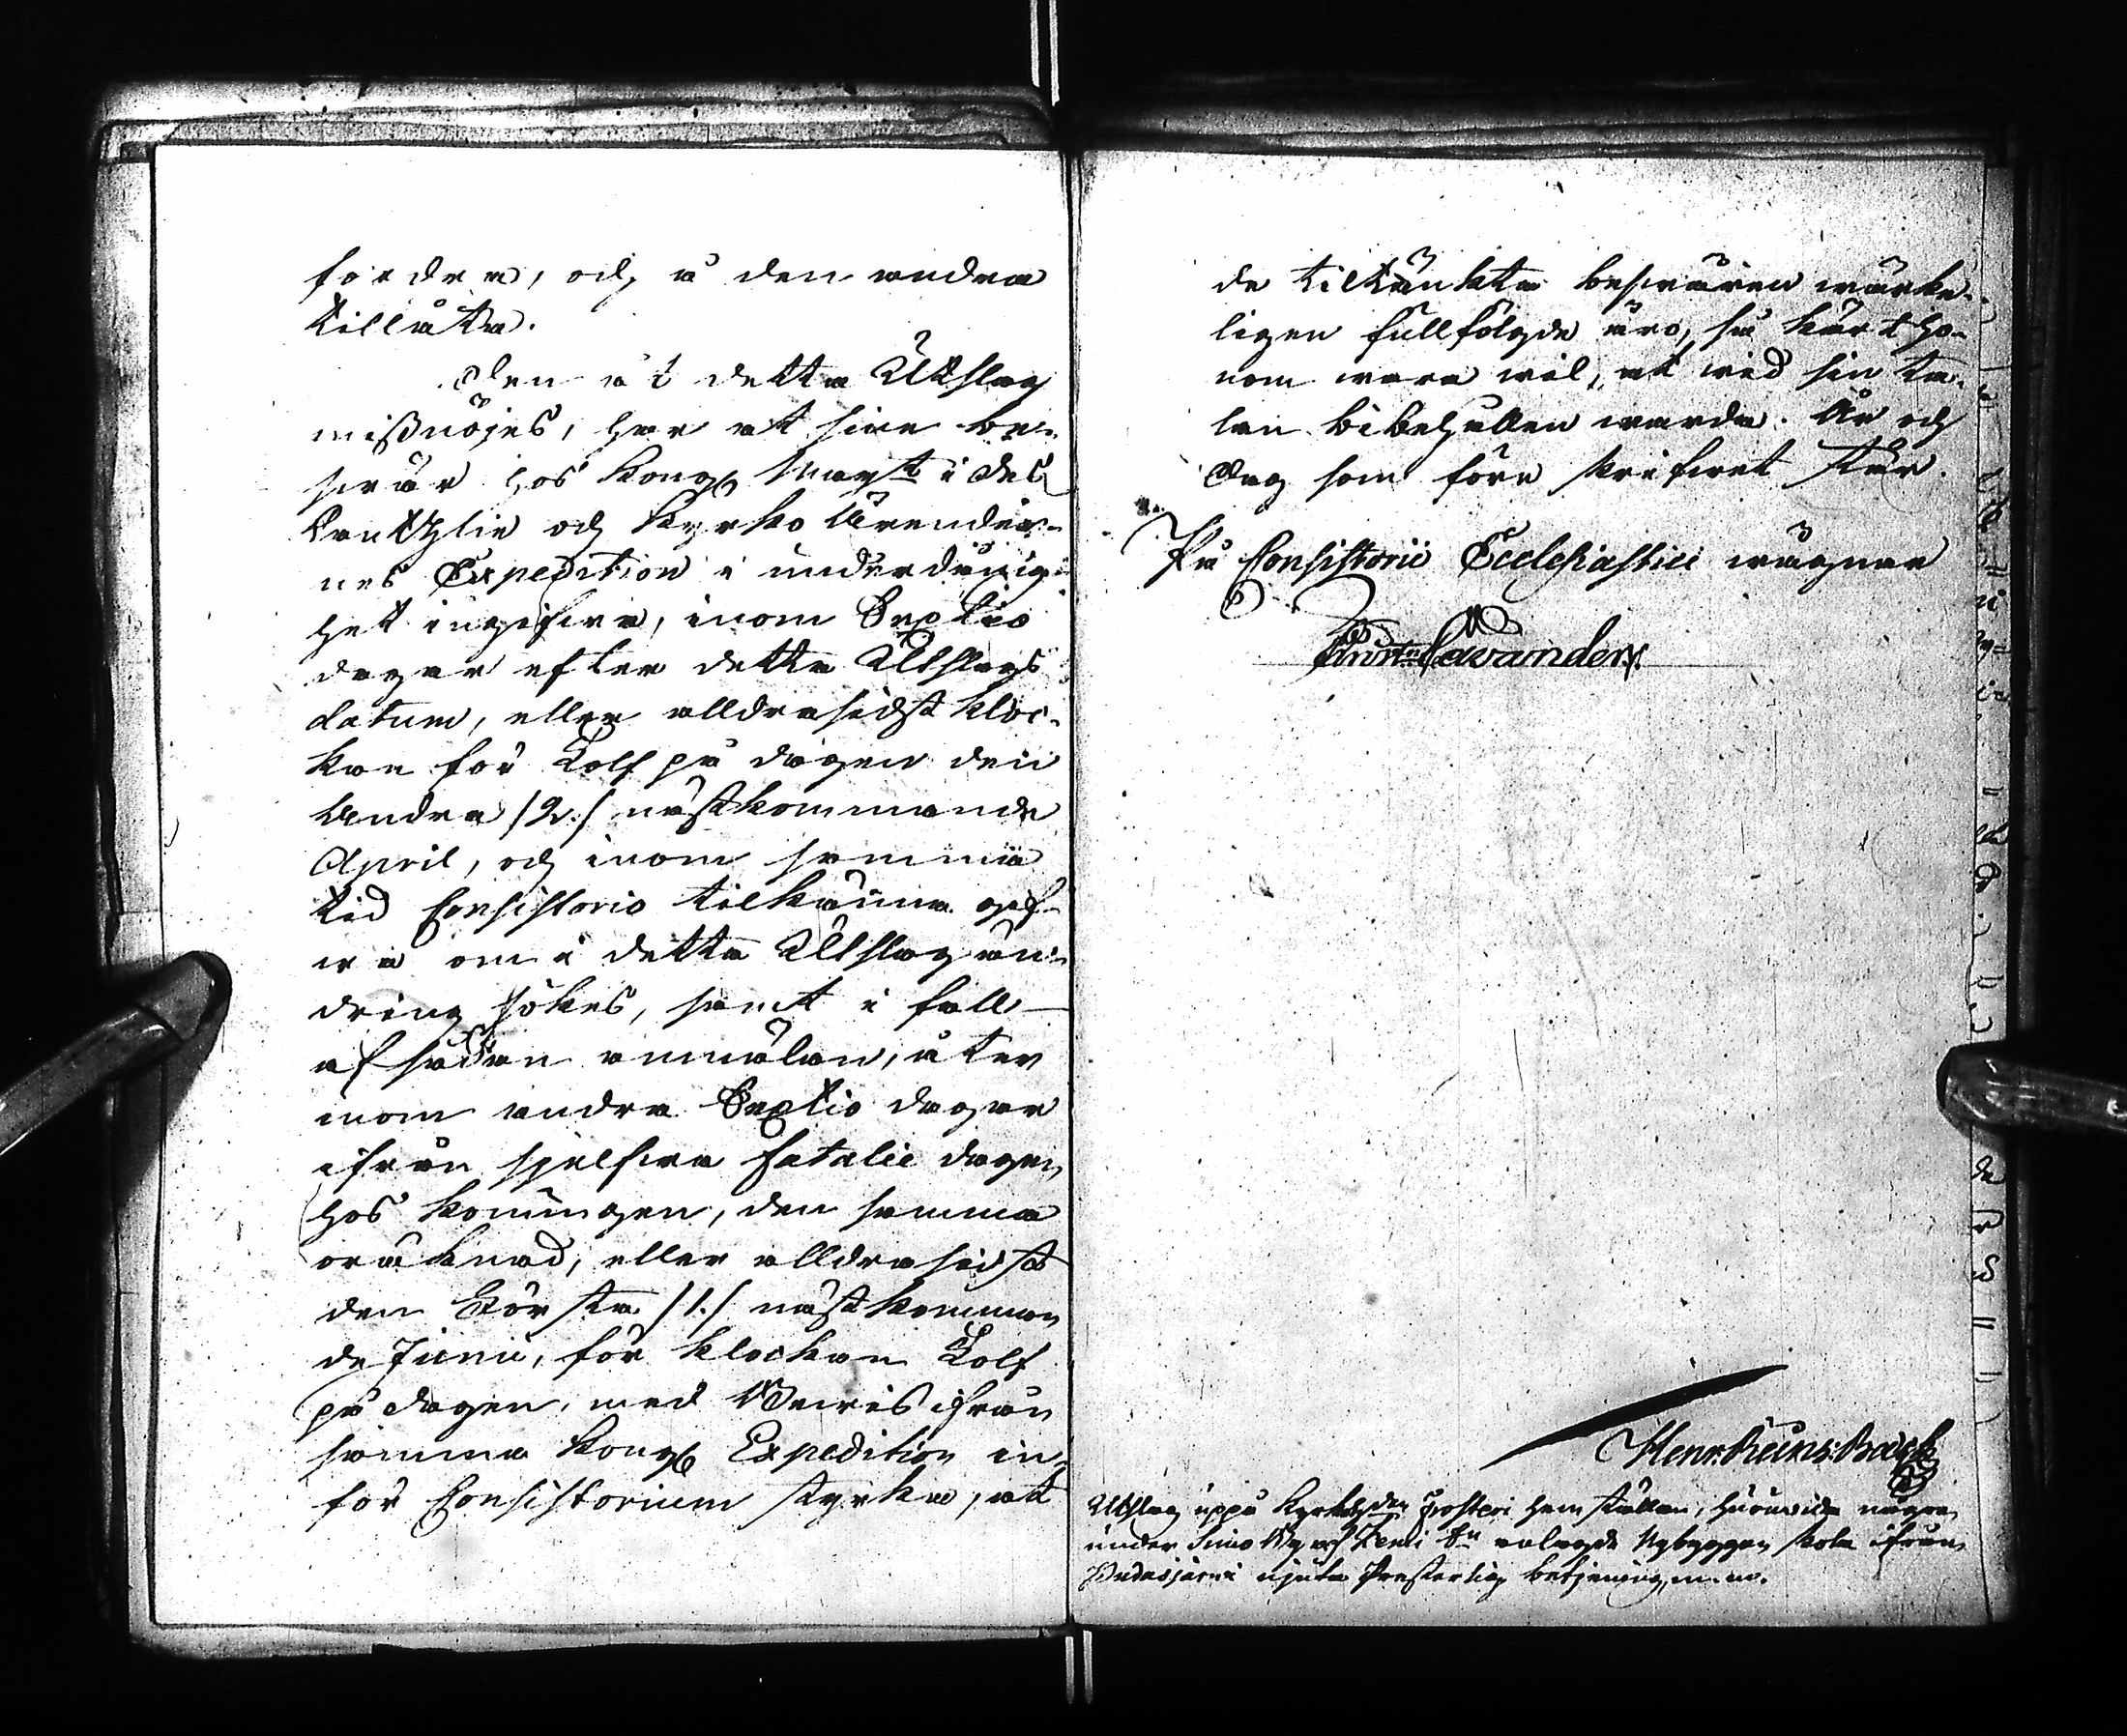 fordra, och å den andra
tillåta.
Den åt detta Utslag
mißnöjes, har at sine be-
svär hos Kongl. Mayt i Des
Cantzlie och Kyrko Ärender-
nes Expedition i underdånig-
het ingifwa, inom Sextio
dagar efter detta Utslags
datum, eller alldrasidst kloc-
kan för Tolf på dagen den
Andra /2./ nästkommande
April, och inom samma
tid Consistorio tilkänna gif-
wa om i detta Utslag än-
dring sökes, samt i fall
af sådan anmälan, åter
inom andra Sextio dagar
ifrån sjelfwa fatalie dagen
hos Konungen, den samma
oräknad, eller alldrasidst
den Första /1./ nästkomman
de Junii, för klockan Tolf
på dagen, med Bewis ifrån
samma Kongl. Expedition in-
för Consistorium styrka, at
de tiltänkta beswären wärke-
ligen fullfölgde äro, så kärt ho-
nom wara wil, at wid sin ta-
lan bibehållen warda. År och
Dag som före skrifwet står.
På Consistorii Ecclesiastici wägnar
Lavander
Henr. Reins: Back
Utslag uppå hemställan, huruwida några
under Simo By af Kemi Sn anlagde Nybyggen skola ifrån
Pudasjärvi njuta Presterlig betjening m.m.